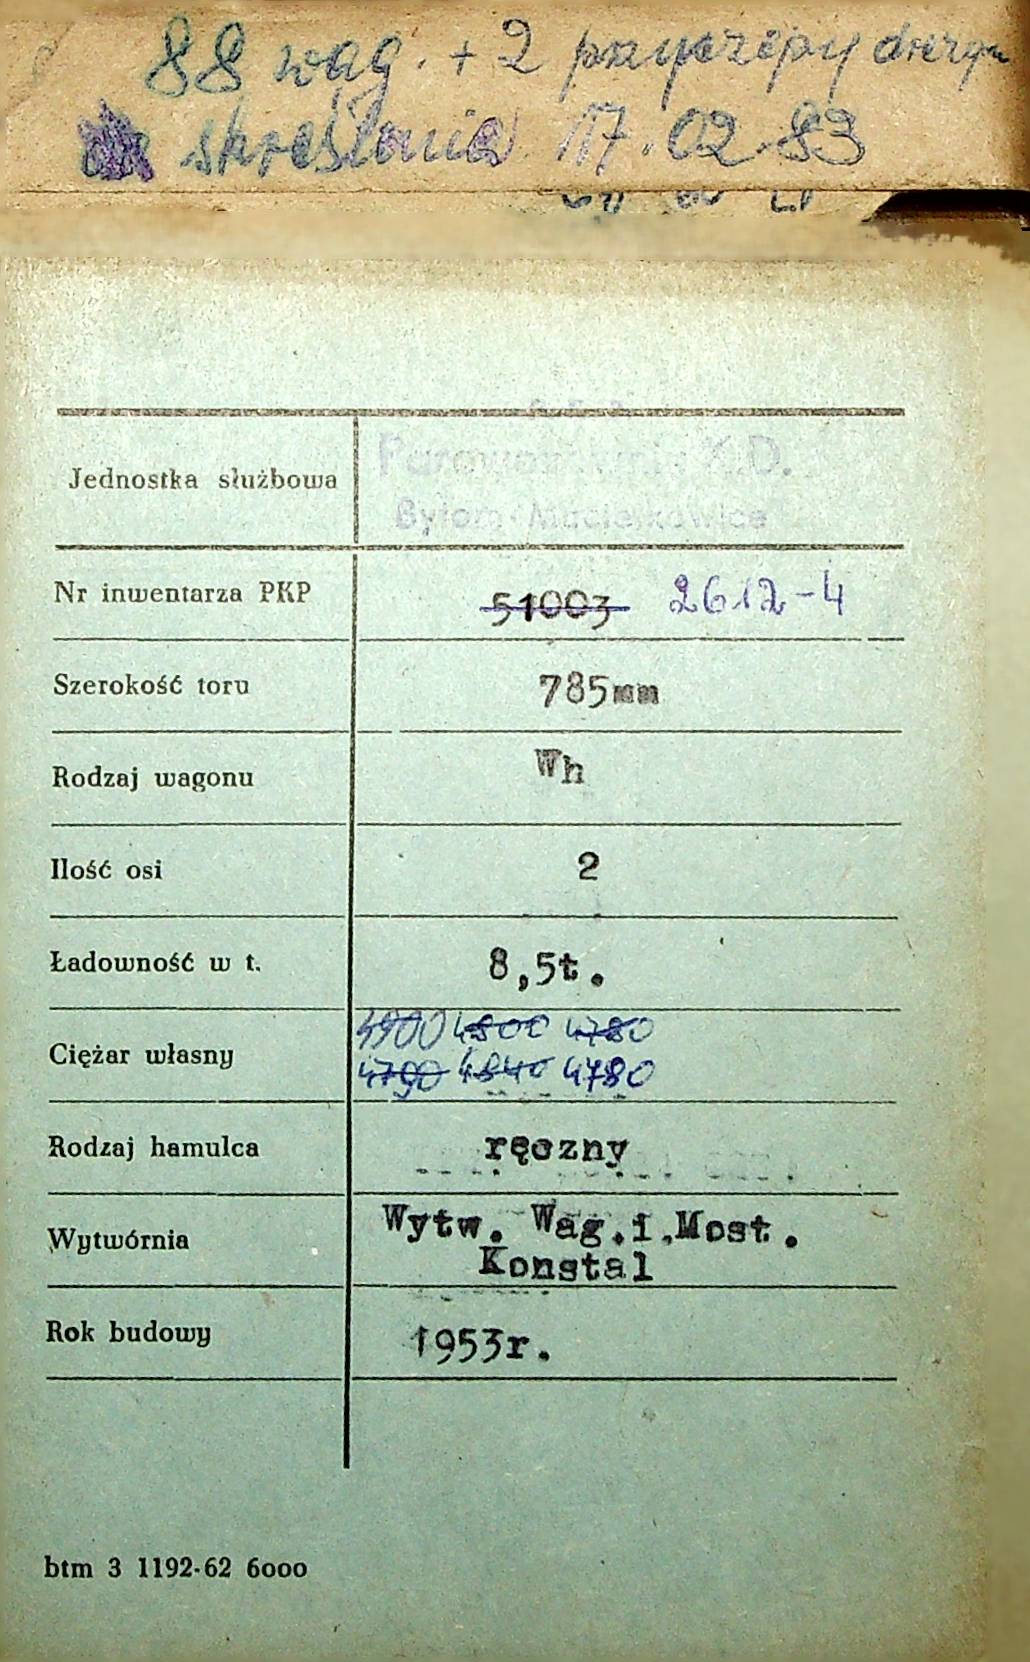 88 wag. + 2 przyczepy
skreślenia 17.02.83
Jednostka służbowa
Parowozownia K.D.
Bytom-Maciejkowice
Nr inwentarza PKP 51003 2612-4
Szerokość toru 785mm
Rodzaj wagonu Wh
Ilość osi 2
Ładowność w t. 8,5t.
4900 4800 4780
Ciężar własny
4790 4840 4780
Rodzaj hamulca ręczny
Wytw. Wag.i.Most.
Wytwórnia
Konstal
Rok budowy 1953r.
btm 3 1192-62 6000